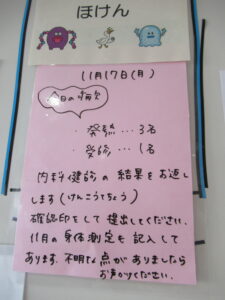 ほけん
11月17日(月)
今日の病欠
・発熱…3名
・受診…1名
内科健診の結果をお返し
します(けんこうてちょう)
確認印をして提出してください。
11月の身体測定も記入して
あります。不明な点がありましたら
お声かけください。